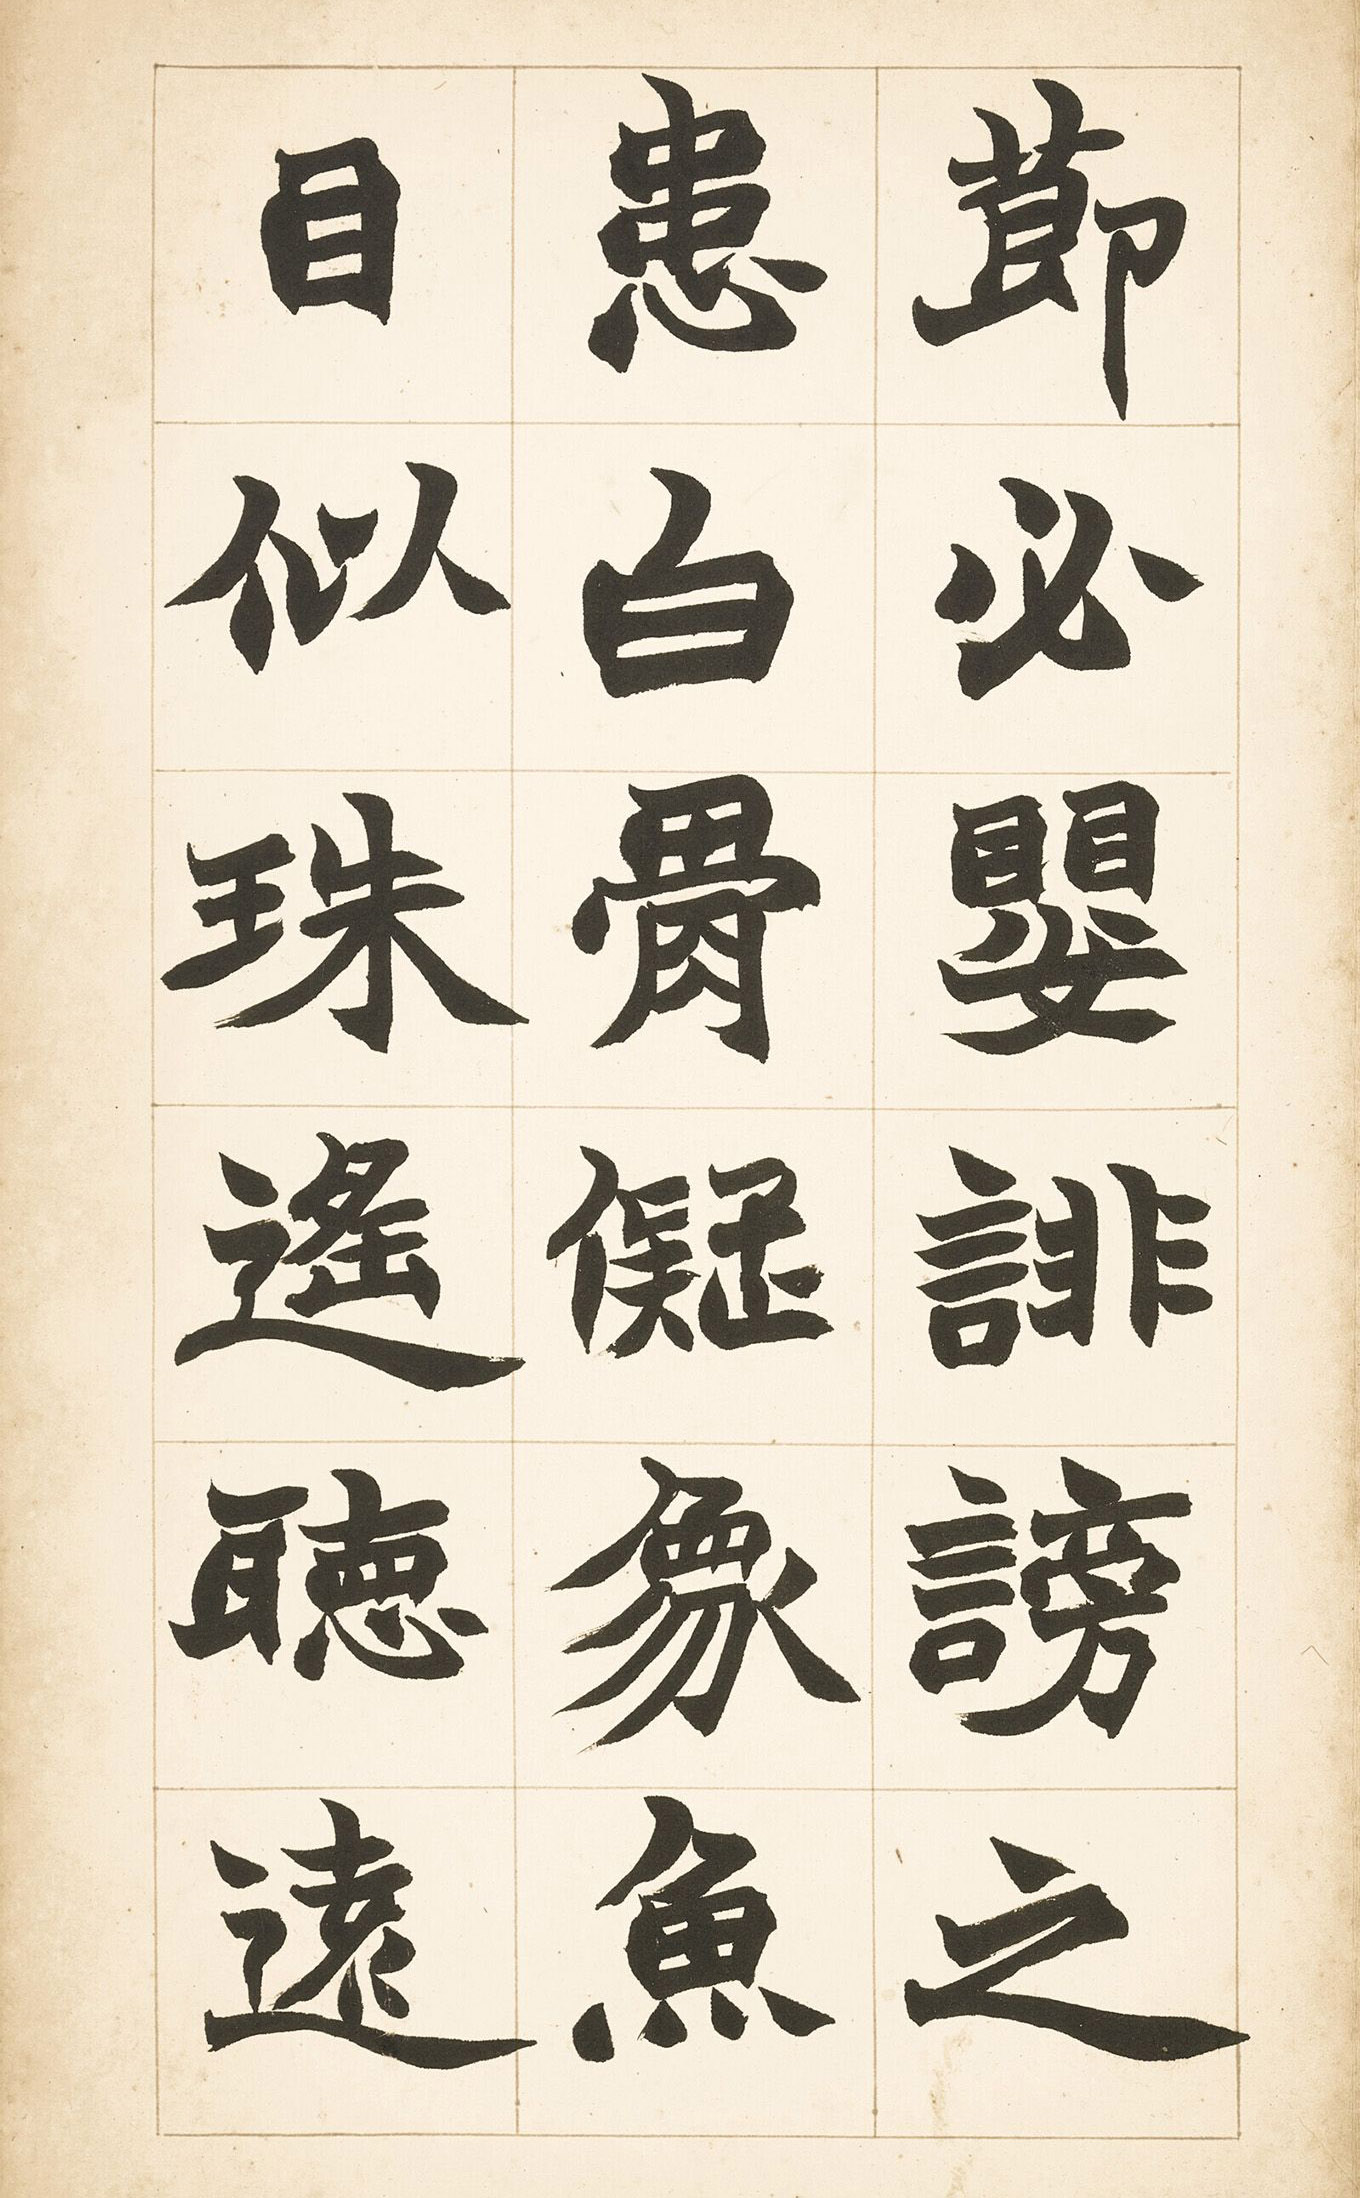 節必嬰誹謗之
患白骨儗象魚
目似珠遙聽遠